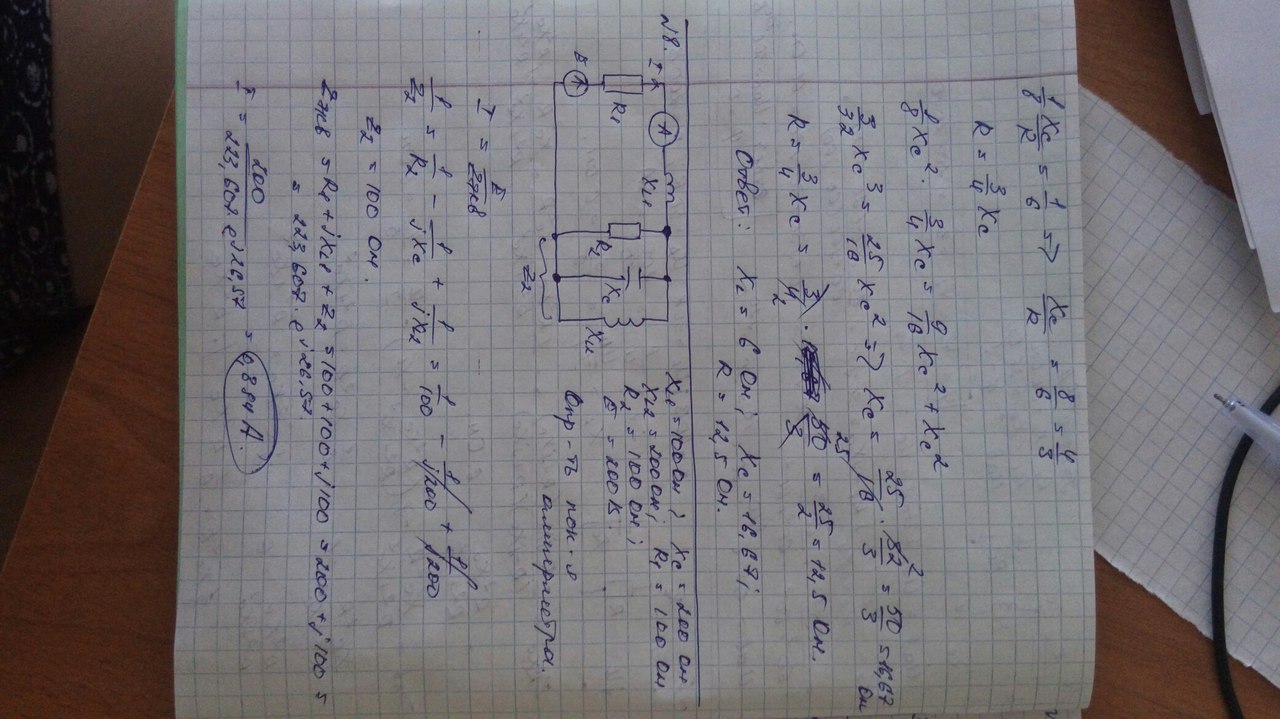 1/8 Xc/R = 1/6 => Xc/R = 8/6 = 4/3
R = 3/4 Xc
1/8 Xc² · 3/4 Xc = 9/16 Xc² + Xc²
3/32 Xc³ = 25/16 Xc² => Xc = 25/16 · 32/3 = 50/3 = 16,67 Ом
R = 3/4 Xc = 3/4 · 50/3 = 25/2 = 12,5 Ом.
Ответ: XL = 6 Ом; Xc = 16,67;
R = 12,5 Ом.
№8.
I
R1
A
XL1
E
R2
Xc
XL2
Z2
XL1 = 100 Ом; Xc = 200 Ом
XL2 = 200 Ом; R1 = 100 Ом
R2 = 100 Ом;
E = 200 В.
Опр-ть пок-я
амперметра.
I = E/Zэкв
1/Z2 = 1/R2 - 1/jXc + 1/jX2 = 1/100 - 1/j200 + 1/j200
Z2 = 100 Ом.
Zэкв = R1 + jXL1 + Z2 = 100 + 100 + j100 = 200 + j100 =
= 223,607 · e^j26,57
I = 200/223,607 e^j26,57 = 0,894 A.